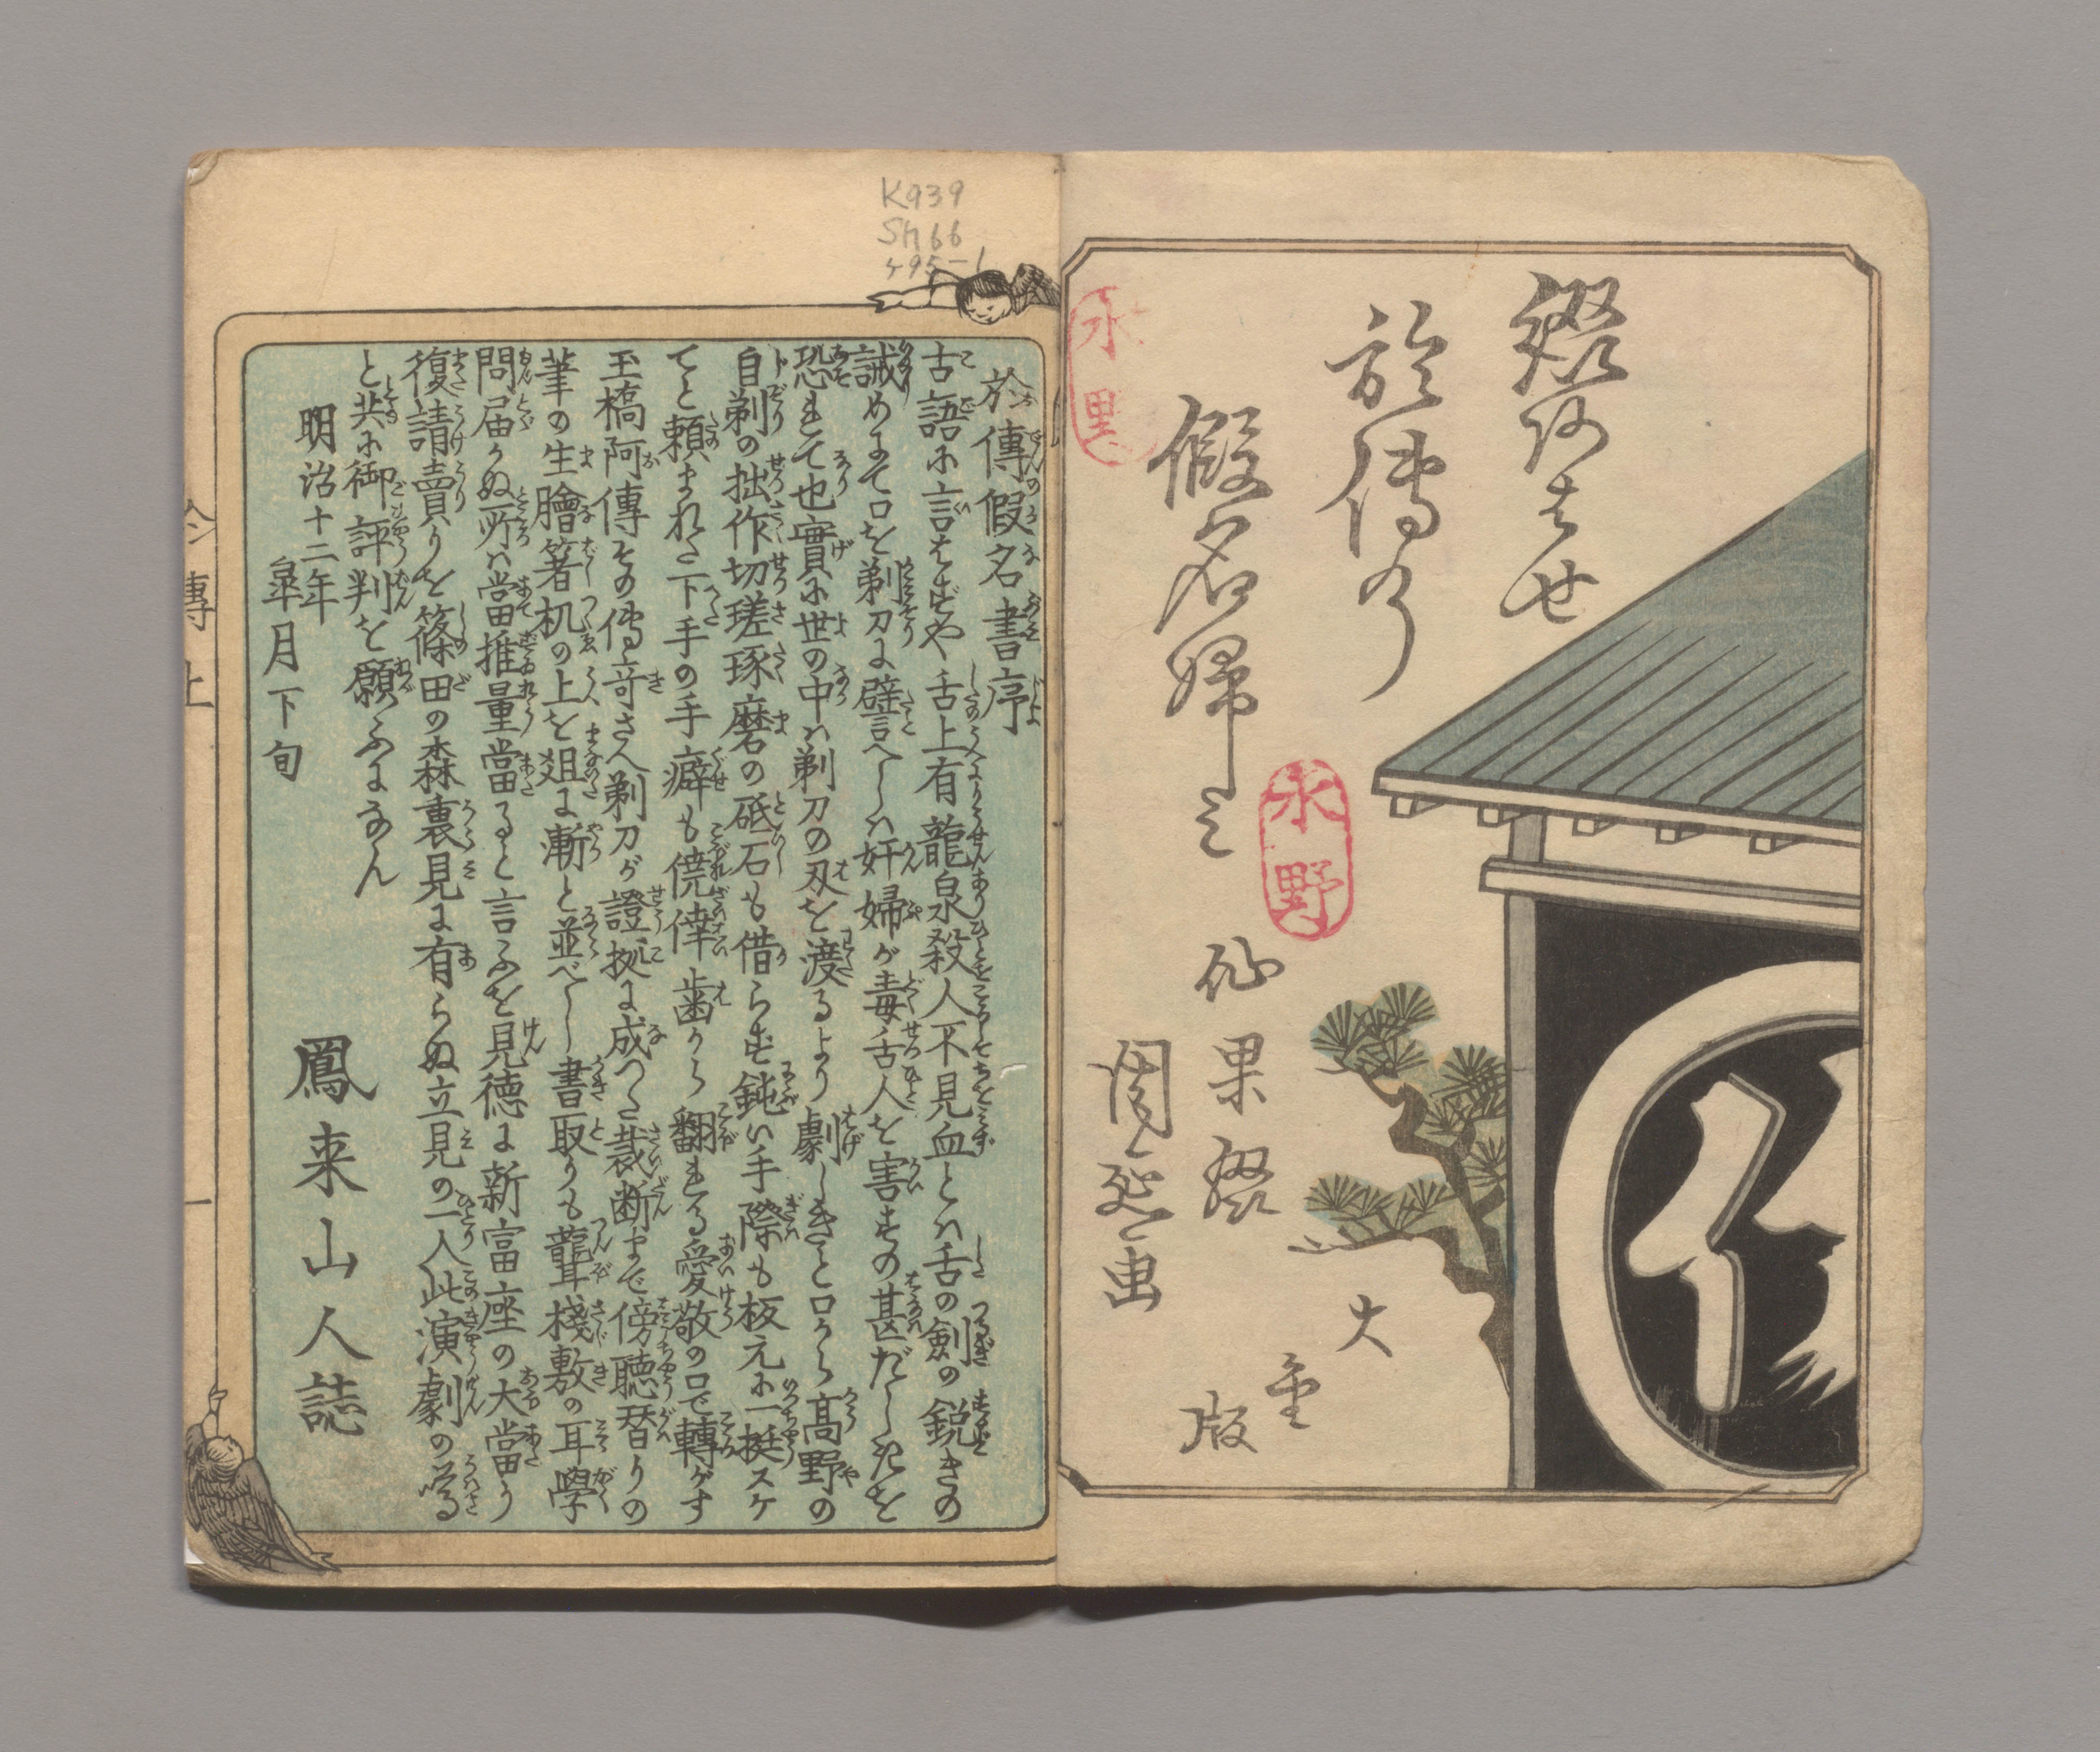 綴あはせ
於傳の
假名婦三
永野
仙果綴
周延画
大
重
版
永野
K939
Sh66
495-1
於傳假名書序
古語に言はずや舌上有龍泉殺人不見血とハ舌の劍の鋭きの
誡めにて口を剃刀に譬へしハ奸婦が毒舌人を害すの甚だしきを
恐れて也實に世の中ハ剃刀の刃を渡るより劇しきと口から髙野の
自剃の拙作切瑳琢磨の砥石も借らず鈍い手際も板元に一挺スケ
てと頼まれた下手の手癖も僥倖歯から翻れる愛敬の口で轉がす
玉橋阿傳その傳竒さへ剃刀が證拠に成つた裁断まで傍聴替りの
筆の生膾箸机の上を爼に漸と並べし書取りも聾桟敷の耳學
問届かぬ所ハ當推量當ると言ふを見徳に新富座の大當り
復請賣りを篠田の森裏見に有らぬ立見の一人此演劇の噂
と共に御評判を願ふになん
明治十二年
皐月下旬
鳳来山人誌
於傳上
一